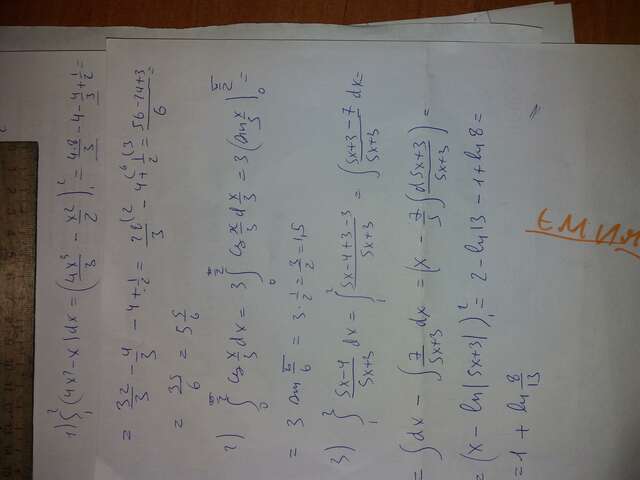 1) ∫₁² (4x² - x) dx = (4x³/3 - x²/2)|₁² = 4·8/3 - 4 - 4/3 + 1/2 =
= 32/3 - 4/3 - 4 + 1/2 = 28/3 - 4 + 1/2 = 56-24+3/6 =
= 35/6 = 5 5/6
2) ∫₀^(π/2) cos x/3 dx = 3 ∫₀^(π/2) cos x/3 d x/3 = 3 (sin x/3)|₀^(π/2) =
= 3 sin π/6 = 3 · 1/2 = 3/2 = 1,5
3) ∫₁² 5x-4/5x+3 dx = ∫₁² 5x-4+3-3/5x+3 = ∫ 5x+3-7/5x+3 dx =
= ∫ dx - ∫ 7/5x+3 dx = (x - 7/5 ∫ d5x+3/5x+3) =
= (x - ln|5x+3|)|₁² = 2 - ln 13 - 1 + ln 8 =
= 1 + ln 8/13